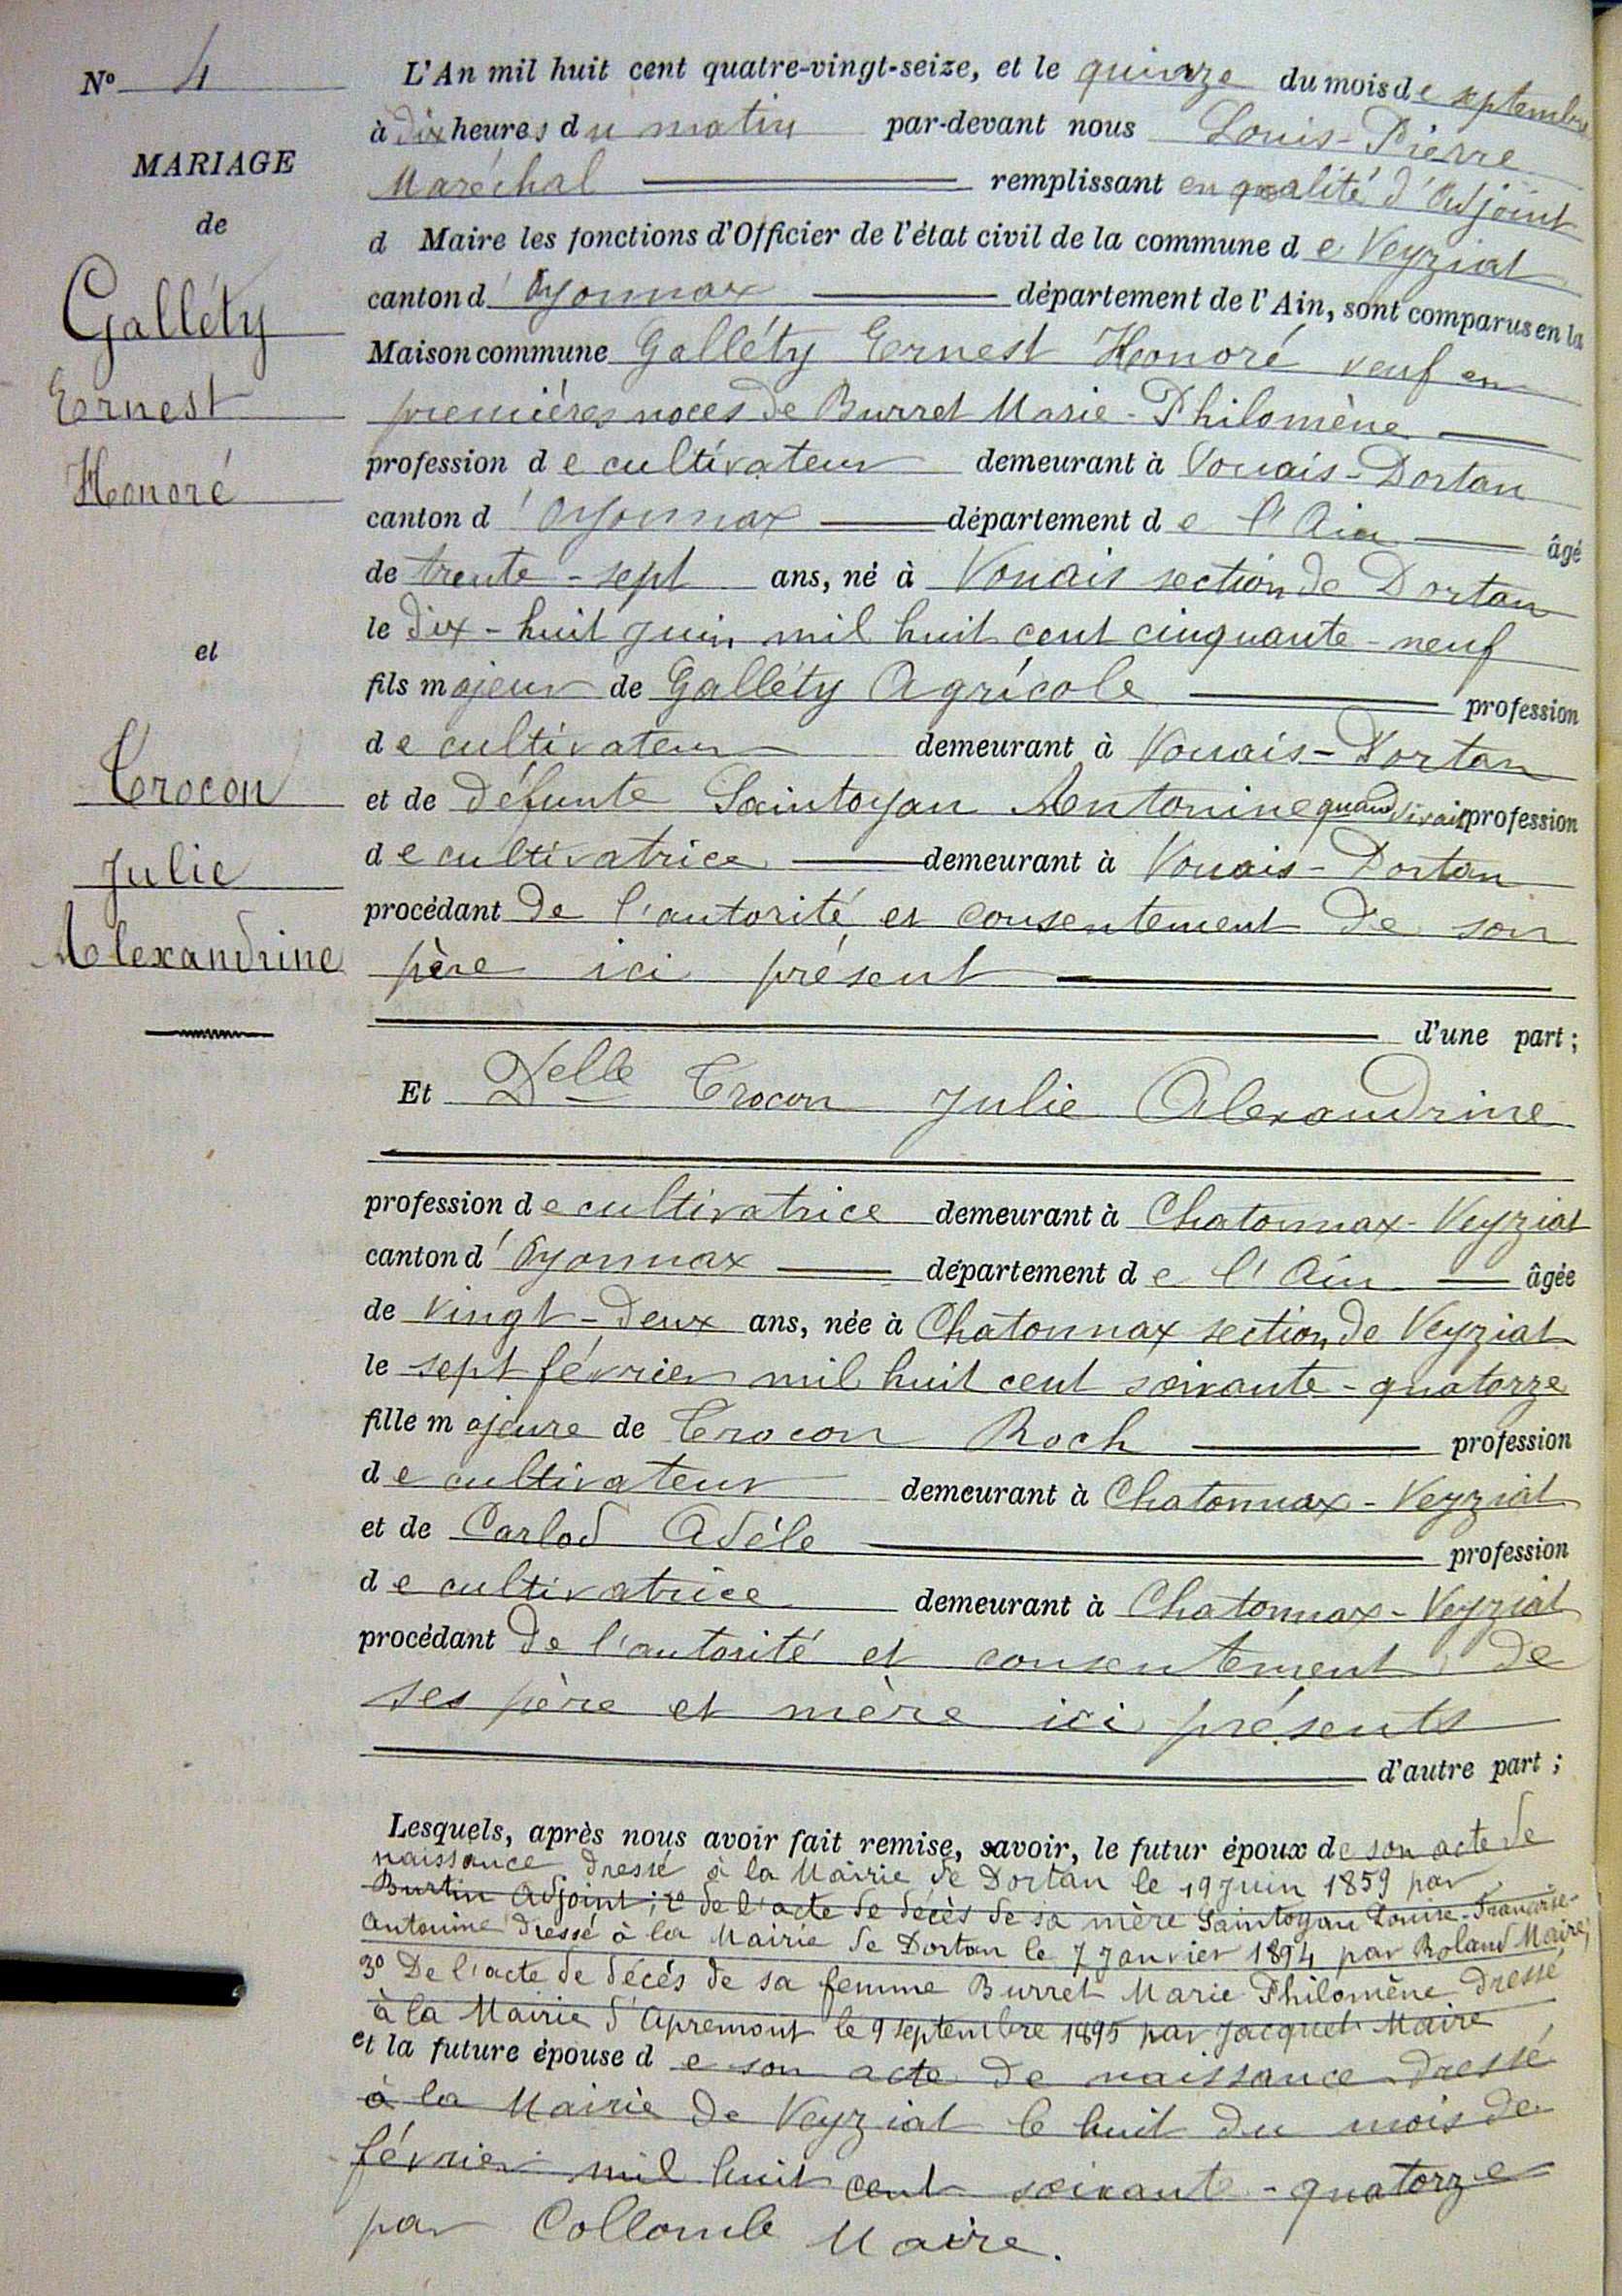 N° 4
MARIAGE
de
Galléty
Ernest
Honoré
et
Crocon
Julie
Alexandrine
L'An mil huit cent quatre-vingt-seize, et le quinze du mois de septembre
à dix heures du matin par-devant nous Louis-Pierre
Maréchal remplissant en qualité d'Adjoint
d Maire les fonctions d'Officier de l'état civil de la commune de Veyziat
canton d'Oyonnax département de l'Ain, sont comparus en la
Maison commune Galléty Ernest Honoré veuf en
premières noces de Burret Marie-Philomène
profession de cultivateur demeurant à Vouais-Dortan
canton d'Oyonnax département de l'Ain âgé
de trente-sept ans, né à Vouais section de Dortan
le dix-huit juin mil huit cent cinquante-neuf
fils majeur de Galléty Agricole profession
de cultivateur demeurant à Vouais-Dortan
et de défunte Saintoyan Antonine quand vivait profession
de cultivatrice demeurant à Vouais-Dortan
procédant de l'autorité et consentement de son
père ici présent
d'une part ;
Et Delle Crocon Julie Alexandrine
profession de cultivatrice demeurant à Chatonnax-Veyziat
canton d'Oyonnax département de l'Ain âgée
de vingt-deux ans, née à Chatonnax section de Veyziat
le sept février mil huit cent soixante-quatorze
fille majeure de Crocon Roch profession
de cultivateur demeurant à Chatonnax-Veyziat
et de Carlod Adèle profession
de cultivatrice demeurant à Chatonnax-Veyziat
procédant de l'autorité et consentement de
ses père et mère ici présents
d'autre part ;
Lesquels, après nous avoir fait remise, savoir, le futur époux de son acte de
naissance dressé à la Mairie de Dortan le 19 juin 1859 par
Burtin Adjoint ; 2° de l'acte de décès de sa mère Saintoyan Louise-Françoise-
Antonine dressé à la Mairie de Dortan le 7 Janvier 1894 par Roland Maire ;
3° De l'acte de décès de sa femme Burret Marie Philomène dressé
à la Mairie d'Apremont le 9 septembre 1895 par Jacquet Maire
et la future épouse de son acte de naissance dressé
à la Mairie de Veyziat le huit du mois de
février mil huit cent soixante-quatorze
par Collomb Maire.